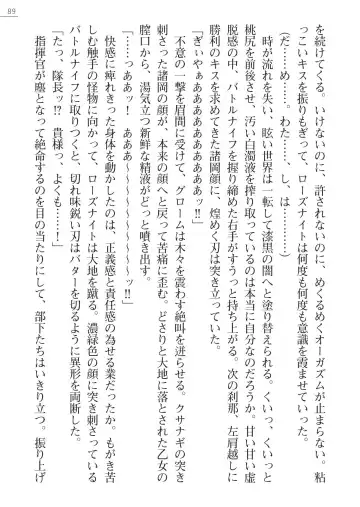 89
を続けてくる。いけないのに、許されないのに、めくるめくオーガズムが止まらない。粘
っこいキスを振りもぎって、ローズナイトは何度も何度も意識を霞ませていった。
(だ……め……。わた……、し、は……)
時が流れを失い、眩い世界は一転して漆黒の闇へと塗り替えられる。くいっ、くいっと
桃尻を前後させ、汚い白濁液を搾り取っているのは本当に自分なのだろうか。甘い甘い虚
脱感の中、バトルナイフを握り締めた右手がすうっと持ち上がる。次の刹那、左肩越しに
勝利のキスを求めてきた諸岡顔に、煌めく刃は突き立っていた。
「ぎぃやぁああああああああああああああああああッ!!」
不意の一撃を眉間に受けて、グロームは木々を震わす絶叫を迸らせる。クサナギの突き
刺さった諸岡の顔が、本来の顔へと戻って苦痛に歪む。どさりと大地に落とされた乙女の
膣口から、湯気立つ新鮮な精液がどっと噴き出す。
「ああ〜〜〜〜〜〜〜〜〜〜〜〜〜〜ッ!!」
快感に痺れきった身体を動かしたのは、正義感と責任感の為せる業だったか。もがき苦
しむ触手の怪物に向かって、ローズナイトは大地を蹴る。濃緑色の顔に突き刺さっている
バトルナイフに取りつくと、切れ味鋭い刃はバターを切るように異形を両断した。
「たっ、隊長ッ!?　貴様っ、よくも……!」
指揮官が塵となって絶命するのを目の当たりにして、部下たちはいきり立つ。振り上げ